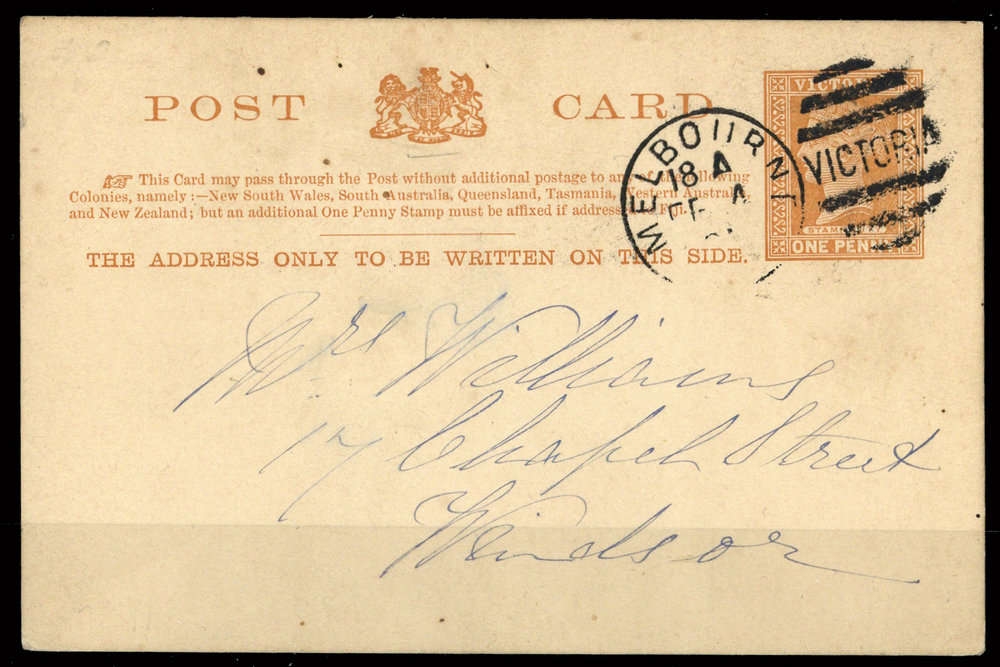 POST CARD
☞ This Card may pass through the Post without additional postage to any of the following
Colonies, namely :—New South Wales, South Australia, Queensland, Tasmania, Western Australia,
and New Zealand; but an additional One Penny Stamp must be affixed if addressed to Fiji.
THE ADDRESS ONLY TO BE WRITTEN ON THIS SIDE.
VICTORIA
STAMP
ONE PENNY
MELBOURNE
18 A
FE
VICTORIA
Mrs Williams
17 Chapel Street
Windsor